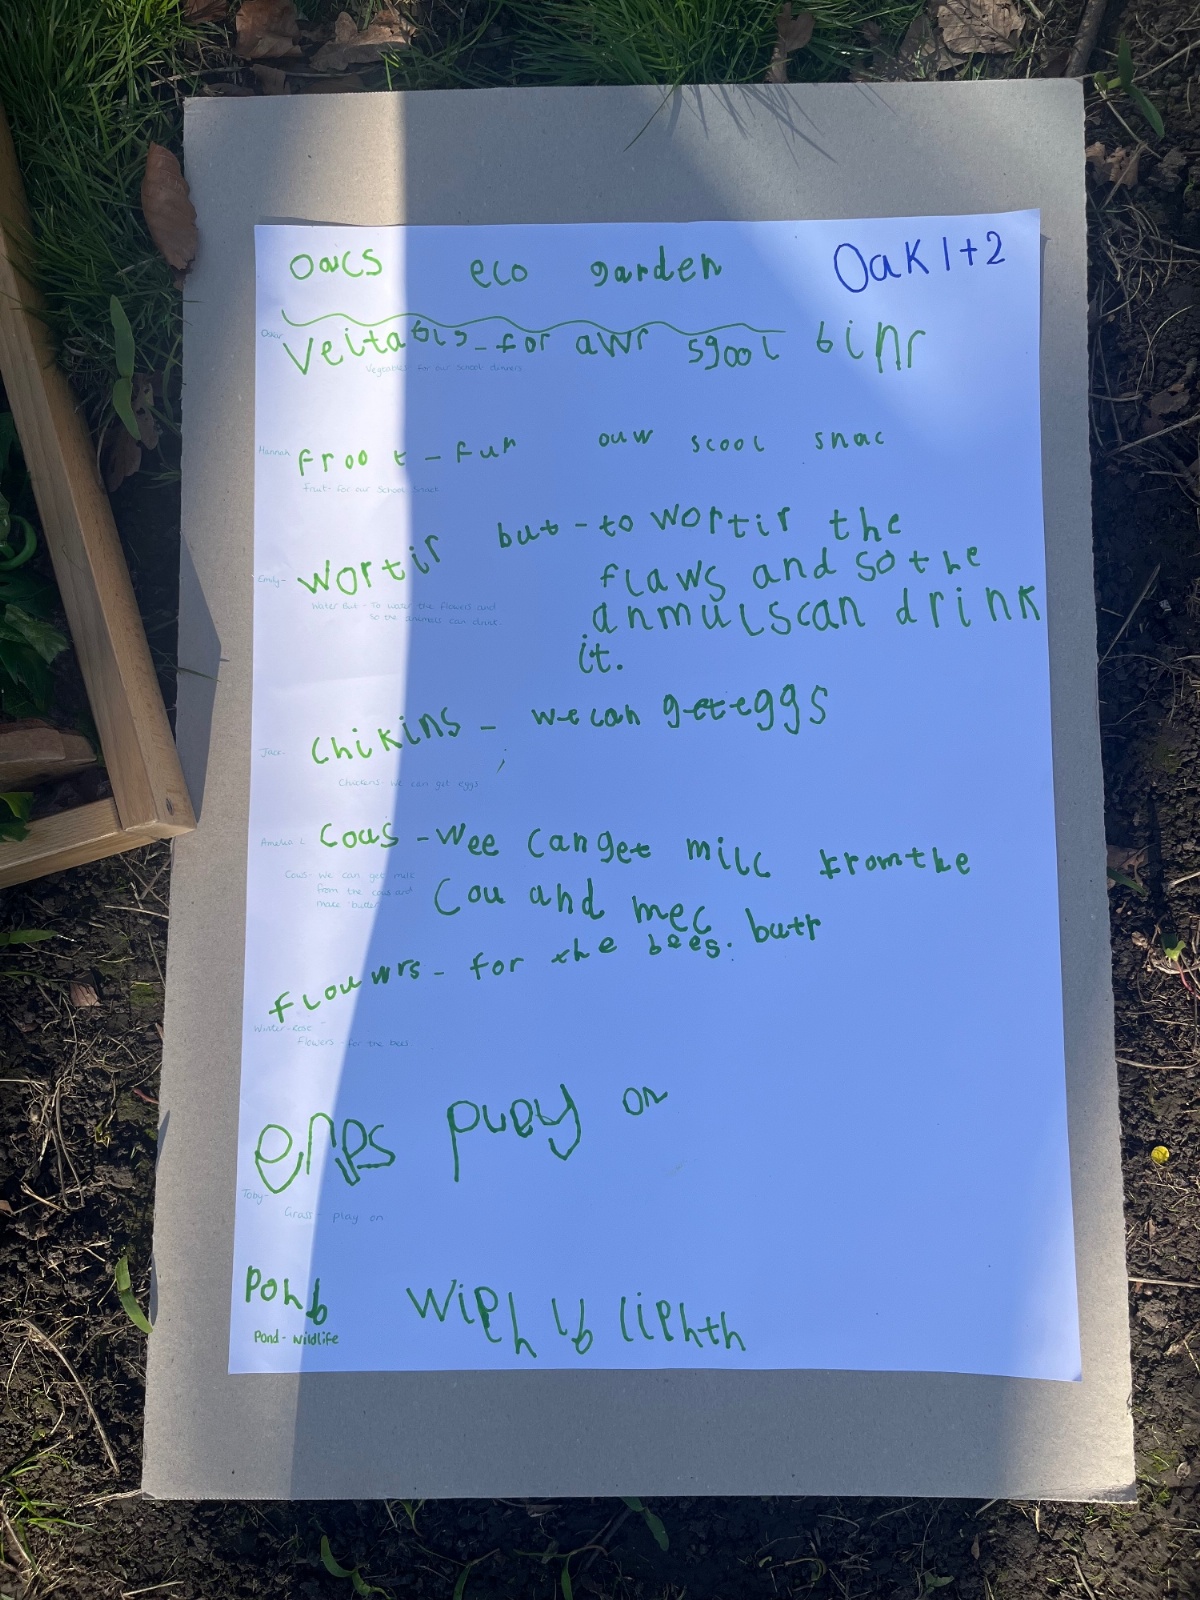 Oaics eco garden
Oak 1+2
Veitabls - for awr sgool binr
Vegetables - for our school dinners
Hannah
froot - fur ouw scool snac
Fruit - for our school snack
wortir but - to wortir the
flaws and so the
anmuls can drink
it.
Emily -
Water But - To water the flowers and
so the animals can drink.
Chikins - we can get eggs
Jack -
Chickens - We can get eggs
Amelia L
Cous - Wee can get milc from the
Cou and mec butr
Cows - We can get milk
from the cows and
make butter
flouwrs - for the bees.
Winter-Rose
Flowers - for the bees
erps puey on
Toby -
Grass - play on
Ponb wiph lb liphth
Pond - Wildlife